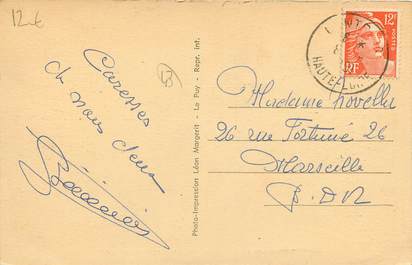 12 €
Caresses
de nous deux
Photo-Impression Léon Margerit - Le Puy - Repr. Int.
12F
POSTES
RF
HAUTE-LOIRE
Madame Novella
26 rue Fortuné 26
Marseille
B.D.R